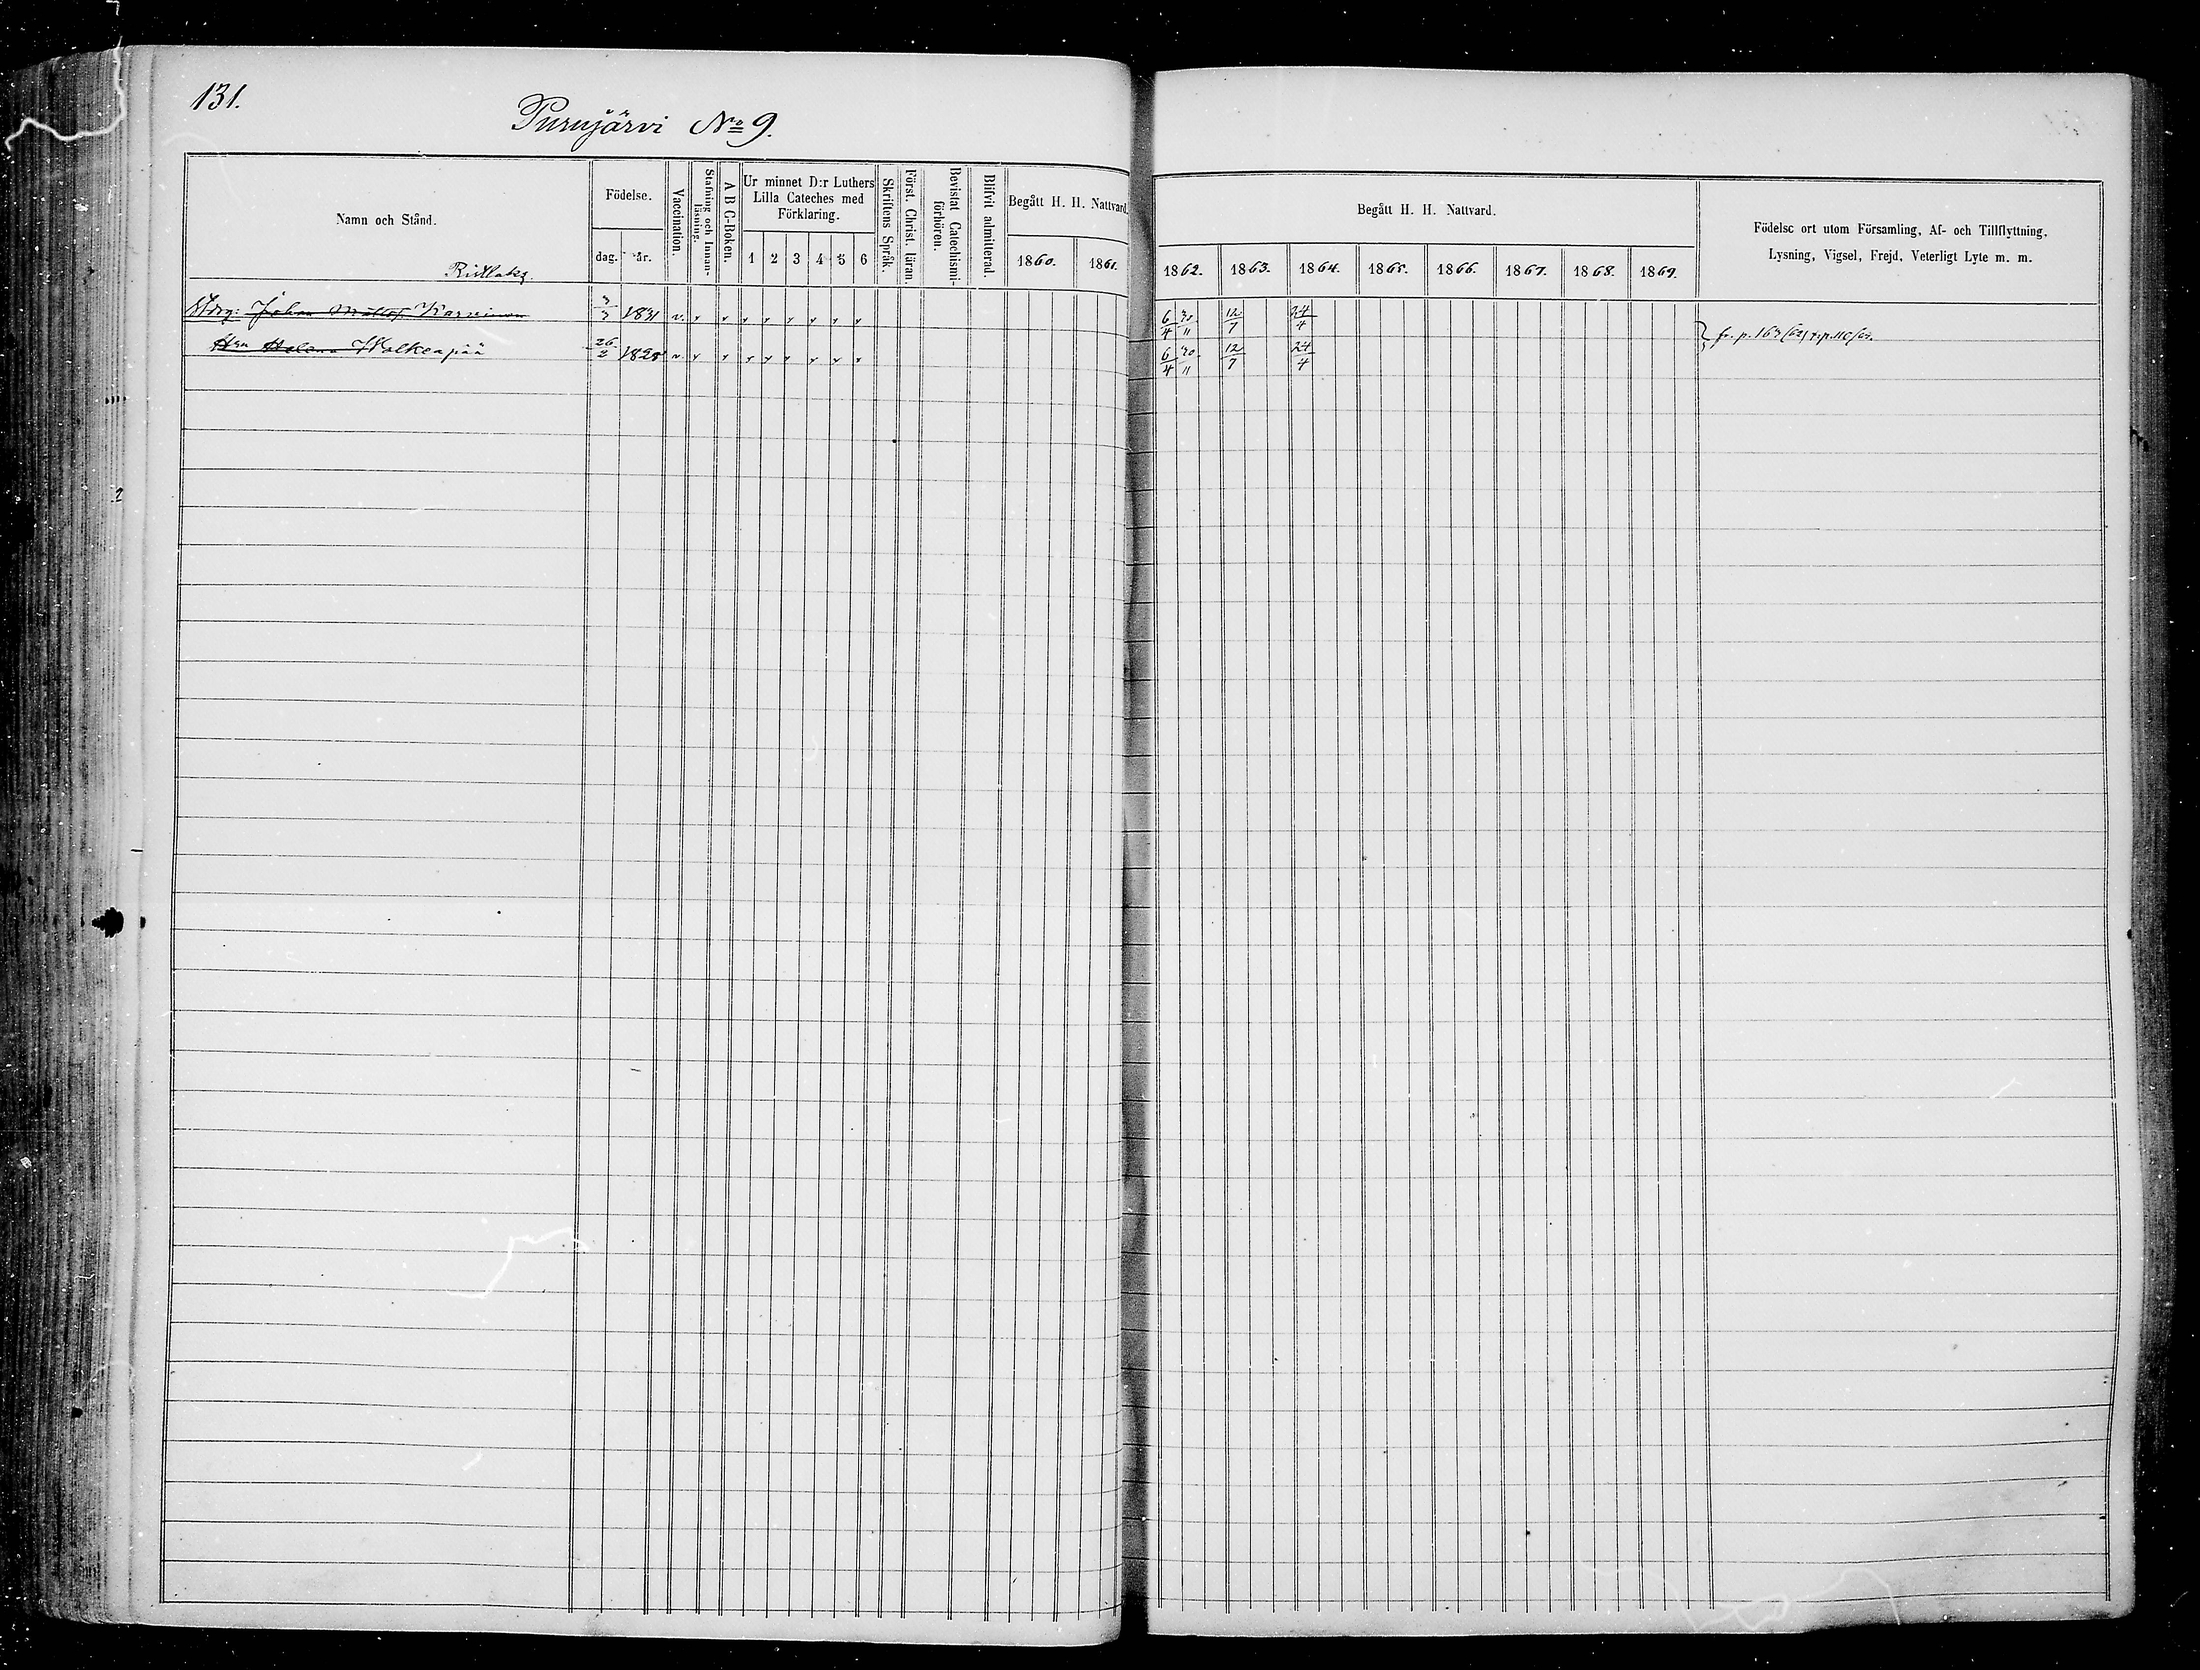 131.
Purujärvi No 9.
Namn och Stånd.
Födelse.
dag.
år.
Vaccination.
Stafning och Innanläsning.
A B C-Boken.
Ur minnet D:r Luthers
Lilla Cateches med
Förklaring.
1 2 3 4 5 6
Skriftens Språk.
Först. Christ. läran.
Bevistat Catechismi-
förhören.
Blifvit admitterad.
Begått H. H. Nattvard.
1860. 1861.
Begått H. H. Nattvard.
1862. 1863. 1864. 1865. 1866. 1867. 1868. 1869.
Födelse ort utom Församling, Af- och Tillflyttning,
Lysning, Vigsel, Frejd, Veterligt Lyte m. m.
Johan Karvinen 3/7 1831 v. 6/4 30/11 12/7 24/4
Hu Helena Walkeapää 26/2 1828 v 6/4 30/11 12/7 24/4
fr. p. 163/62